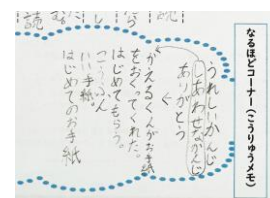 なるほどコーナー(こうりゅうメモ)
うれしいかんじ
しあわせなかんじ
ありがとう
がえるくんがお手紙
をおくってくれた。
はじめてもらう。
いい手紙。
はじめてのお手紙
読
読